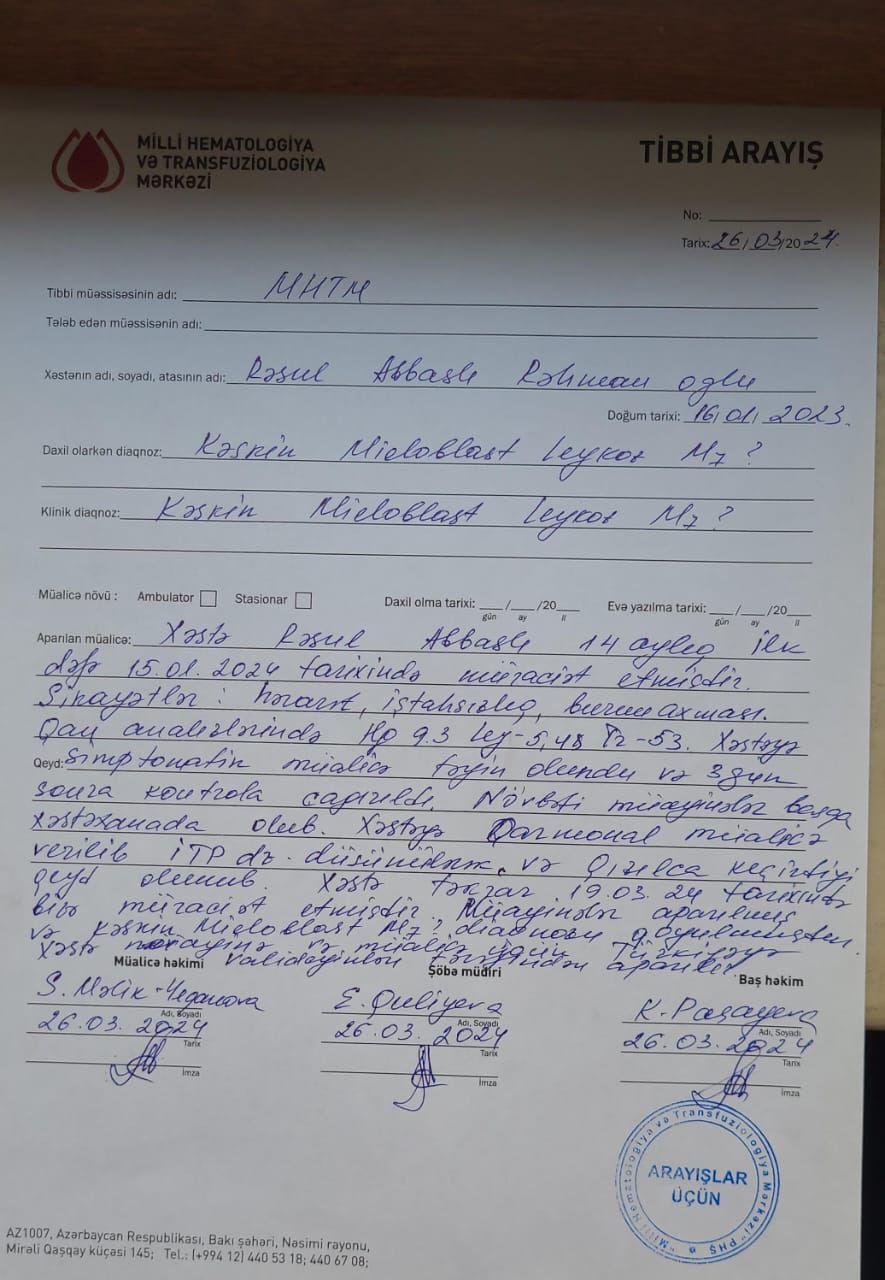 MİLLİ HEMATOLOGİYA
VƏ TRANSFUZİOLOGİYA
MƏRKƏZİ
TİBBİ ARAYIŞ
No:
Tarix: 26/03/2024
Tibbi müəssisəsinin adı: MHTM
Tələb edən müəssisənin adı:
Xəstənin adı, soyadı, atasının adı: Rəsul Abbaslı Rəhman oğlu
Doğum tarixi: 16/01/2023.
Daxil olarkən diaqnoz: Kəskin Mieloblast Leykoz M7?
Klinik diaqnoz: Kəskin Mieloblast Leykoz M7?
Müalicə növü: Ambulator Stasionar Daxil olma tarixi: __/__/20__ Evə yazılma tarixi: __/__/20__
gün ay il gün ay il
Aparılan müalicə: Xəstə Rəsul Abbaslı 14 aylıq ilk
dəfə 15.01.2024 tarixində müraciət etmişdir.
Şikayətlər: hərarət, iştahsızlıq, burun axması.
Qan analizlərində Hg 9.3 Ley-5,48 Tr-53. Xəstəyə
Qeyd: Simptomatik müalicə təyin olundu və 3 gün
sonra kontrola çağırıldı. Növbəti müayinələr başqa
xəstəxanada olub. Xəstəyə Qarmonal müalicə
verilib İTP də düşünülərək və Qızılca keçirdiyi
qeyd olunub. Xəstə təkrar 19.03.24 tarixində
bizə müraciət etmişdir. Müayinələr aparılmış
və Kəskin Mieloblast M7? diaqnozu qoyulmuşdur.
Xəstə müayinə və müalicə üçün Türkiyəyə
valideyinləri tərəfindən aparılır.
Müalicə həkimi Şöbə müdiri Baş həkim
S. Məlik-Yeganova E. Quliyeva K. Paşayeva
Adı, Soyadı Adı, Soyadı Adı, Soyadı
26.03.2024 26.03.2024 26.03.2024
Tarix Tarix Tarix
İmza İmza İmza
"Milli Hematologiya və Transfuziologiya Mərkəzi" PHŞ
ARAYIŞLAR
ÜÇÜN
AZ1007, Azərbaycan Respublikası, Bakı şəhəri, Nəsimi rayonu,
Mirəli Qaşqay küçəsi 145; Tel.: (+994 12) 440 53 18; 440 67 08;